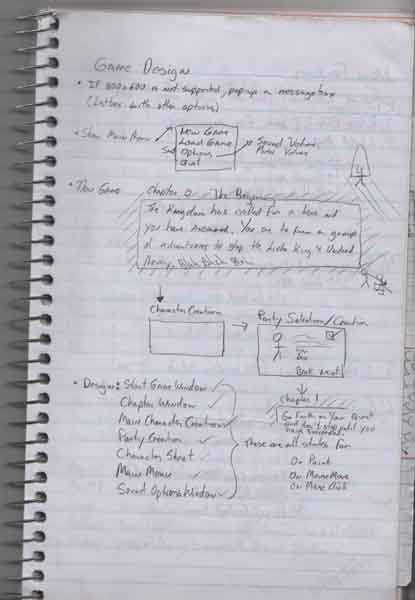 Game Design
• If 800x600 is not supported, pop up a messagebox
(Listbox with other options)
• Show Main Menu
New Game
Load Game
Options
Quit
Sound Volume,
Music Volume
• New Game
Chapter 0 - The Beginning
The Kingdom has called for a hero and
you have answered. You are to form a group
of adventurers to stop the Lich King's Undead
Army, Blah Blah Blah
Character Creation
Party Selection/Creation
Back Next
• Design: Start Game Window ✓
Chapter Window ✓
Main Character Creation ✓
Party Creation ✓
Character Sheet ✓
Main Menu ✓
Sound Options Window ✓
Chapter 1
Go Forth on Your Quest
and don't stop until you
have succeeded.
These are all states for
On Paint
On MouseMove
On Mouse Click